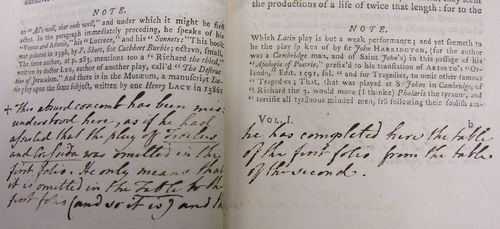 NOTE.
to "All's well, that ends well," and under which it might be first
acted. In the paragraph immediately preceding, he speaks of his
"Venus and Adonis," his "Lucrece," and his "Sonnets:" This book
was printed in 1598, by P. Short, for Cuthbert Burbie; octavo, small.
The same author, at p. 283, mentions too a "Richard the third,"
written by doctor LEG, author of another play, call'd "The Destruc
tion of Jerusalem." And there is in the Museum, a manuscript
play upon the same subject, written by one Henry LACY in 1586:
+ This absurd coxcomb has been mis
understood here, as if he had
asserted that the play of Troilus
and Cressida was omitted in the
first folio. He only means that
it is omitted in the Table to the
first folio (and so it is) and
the productions of a life of twice that length: for to the
NOTE.
Which Latin play is but a weak performance; and yet seemeth to
be the play spoken of by sir John HARINGTON, (for the author
was a Cambridge man, and of Saint John's) in this passage of his
"Apologie of Poetrie," prefix'd to his translation of ARIOSTO's "Or-
lando," Edit. 1591, fol. "and for Tragedies, to omit other famous
"Tragedies; That, that was played at S. John's in Cambridge, of
"Richard the 3. would move (I thinke) Phalaris the tyrant, and
"terrifie all tyrannous minded men, frō following their foolish am-
VOL. I.
b
he has completed here the table
of the first folio from the table
of the second.